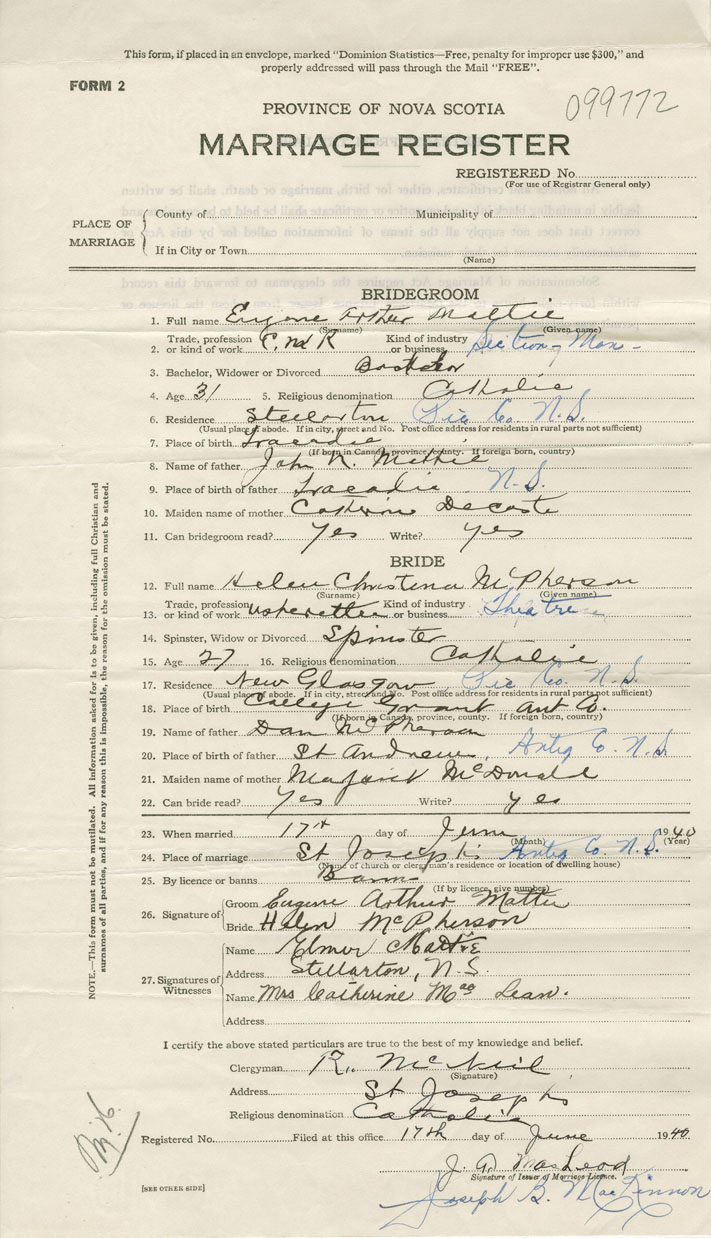 This form, if placed in an envelope, marked "Dominion Statistics—Free, penalty for improper use $300," and
properly addressed will pass through the Mail "FREE".
FORM 2
PROVINCE OF NOVA SCOTIA
099772
MARRIAGE REGISTER
REGISTERED No.
(For use of Registrar General only)
PLACE OF MARRIAGE
County of Municipality of
If in City or Town
(Name)
BRIDEGROOM
1. Full name Eugene Arther Mattie
(Surname) (Given name)
2. Trade, profession or kind of work C.N.R Kind of industry or business Section-Man-
3. Bachelor, Widower or Divorced Bachelor
4. Age 31 5. Religious denomination Catholic
6. Residence Stellarton Pic Co. N.S.
(Usual place of abode. If in city, street and No. Post office address for residents in rural parts not sufficient)
7. Place of birth Tracadie
(If born in Canada, province, county. If foreign born, country)
8. Name of father John N. Mattie
9. Place of birth of father Tracadie N-S.
10. Maiden name of mother Catherine Decoste
11. Can bridegroom read? Yes Write? Yes
BRIDE
12. Full name Helen Christena McPherson
(Surname) (Given name)
13. Trade, profession or kind of work usherette Kind of industry or business Theatre
14. Spinster, Widow or Divorced Spinster
15. Age 27 16. Religious denomination Catholic
17. Residence New Glasgow Pic Co. N.S.
(Usual place of abode. If in city, street and No. Post office address for residents in rural parts not sufficient)
18. Place of birth College Grant Ant Co.
(If born in Canada, province, county. If foreign born, country)
19. Name of father Dan McPherson
20. Place of birth of father St Andrews, Antig Co. N.S
21. Maiden name of mother Margaret McDonald
22. Can bride read? Yes Write? yes
23. When married 17th day of June 1940
(Month) (Year)
24. Place of marriage St Joseph's Antig Co. N.S.
(Name of church or clergyman's residence or location of dwelling house)
25. By licence or banns Banns
(If by licence, give number)
26. Signature of
Groom Eugene Arthur Mattie
Bride Helen McPherson
27. Signatures of Witnesses
Name Elmer Mattie
Address Stellarton, N.S.
Name Mrs Catherine Mac Lean.
Address
I certify the above stated particulars are true to the best of my knowledge and belief.
Clergyman R. McNeil
(Signature)
Address St Josephs
Religious denomination Catholic
Registered No. Filed at this office 17th day of June 1940
J. D. MacLeod
Signature of Issuer of Marriage Licence.
Joseph B. MacKinnon
[SEE OTHER SIDE]
NOTE.—This form must not be mutilated. All information asked for is to be given, including full Christian and
surnames of all parties, and if for any reason this is impossible, the reason for the omission must be stated.